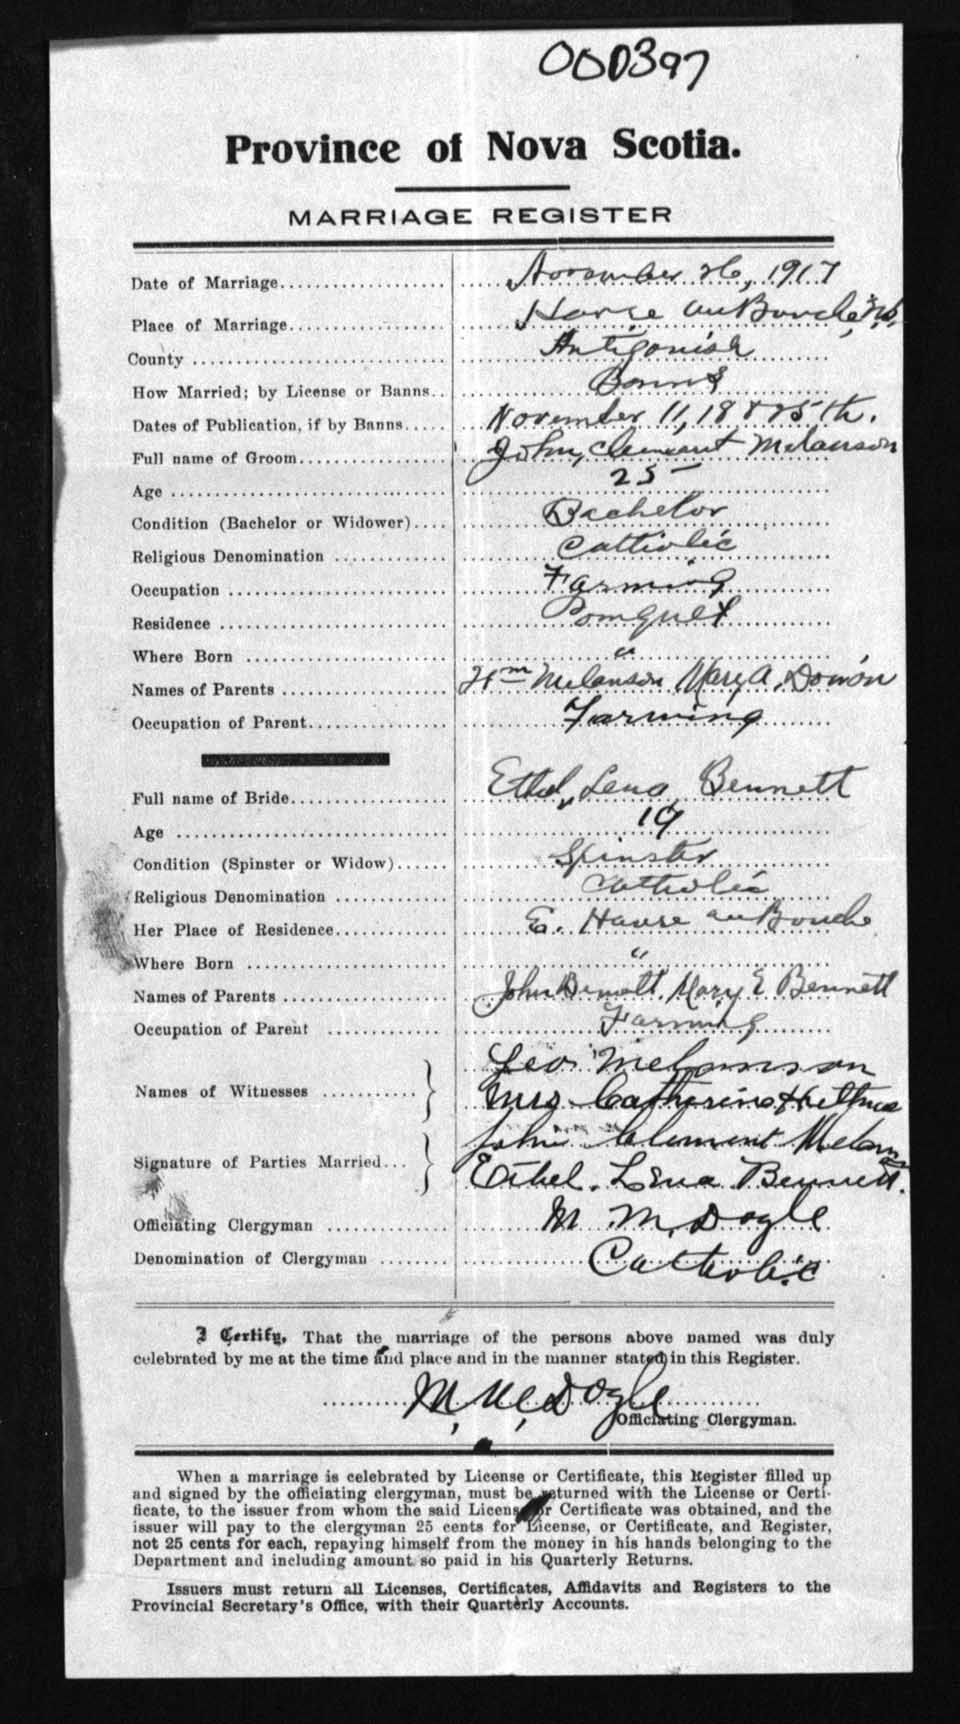 000397
Province of Nova Scotia.
MARRIAGE REGISTER
Date of Marriage........ November 26, 1917
Place of Marriage........ Havre au Bouche, N.S.
County ........ Antigonish
How Married; by License or Banns.. Banns
Dates of Publication, if by Banns..... November 11, 18 & 25th.
Full name of Groom........ John, Clement Melanson
Age ........ 25
Condition (Bachelor or Widower).... Bachelor
Religious Denomination ........ Catholic
Occupation ........ Farming
Residence ........ Pomquet
Where Born ........ "
Names of Parents ........ Wm Melanson Mary A.
Occupation of Parent........ Farming
Full name of Bride........ Ethel, Lena, Bennett
Age ........ 19
Condition (Spinster or Widow)...... Spinster
Religious Denomination ........ Catholic
Her Place of Residence........ E. Havre au Bouche
Where Born ........ "
Names of Parents ........ John Bennett. Mary E Bennett
Occupation of Parent ........ Farming
Names of Witnesses ........ } Leo Melanson
Mrs Catherine
Signature of Parties Married... } John Clement Melanson
Ethel. Lena Bennett.
Officiating Clergyman ........ M. M. Doyle
Denomination of Clergyman ........ Catholic
I Certify, That the marriage of the persons above named was duly
celebrated by me at the time and place and in the manner stated in this Register.
M. M. Doyle
Officiating Clergyman.
When a marriage is celebrated by License or Certificate, this Register filled up
and signed by the officiating clergyman, must be returned with the License or Certi-
ficate, to the issuer from whom the said License or Certificate was obtained, and the
issuer will pay to the clergyman 25 cents for License, or Certificate, and Register,
not 25 cents for each, repaying himself from the money in his hands belonging to the
Department and including amount so paid in his Quarterly Returns.
Issuers must return all Licenses, Certificates, Affidavits and Registers to the
Provincial Secretary's Office, with their Quarterly Accounts.